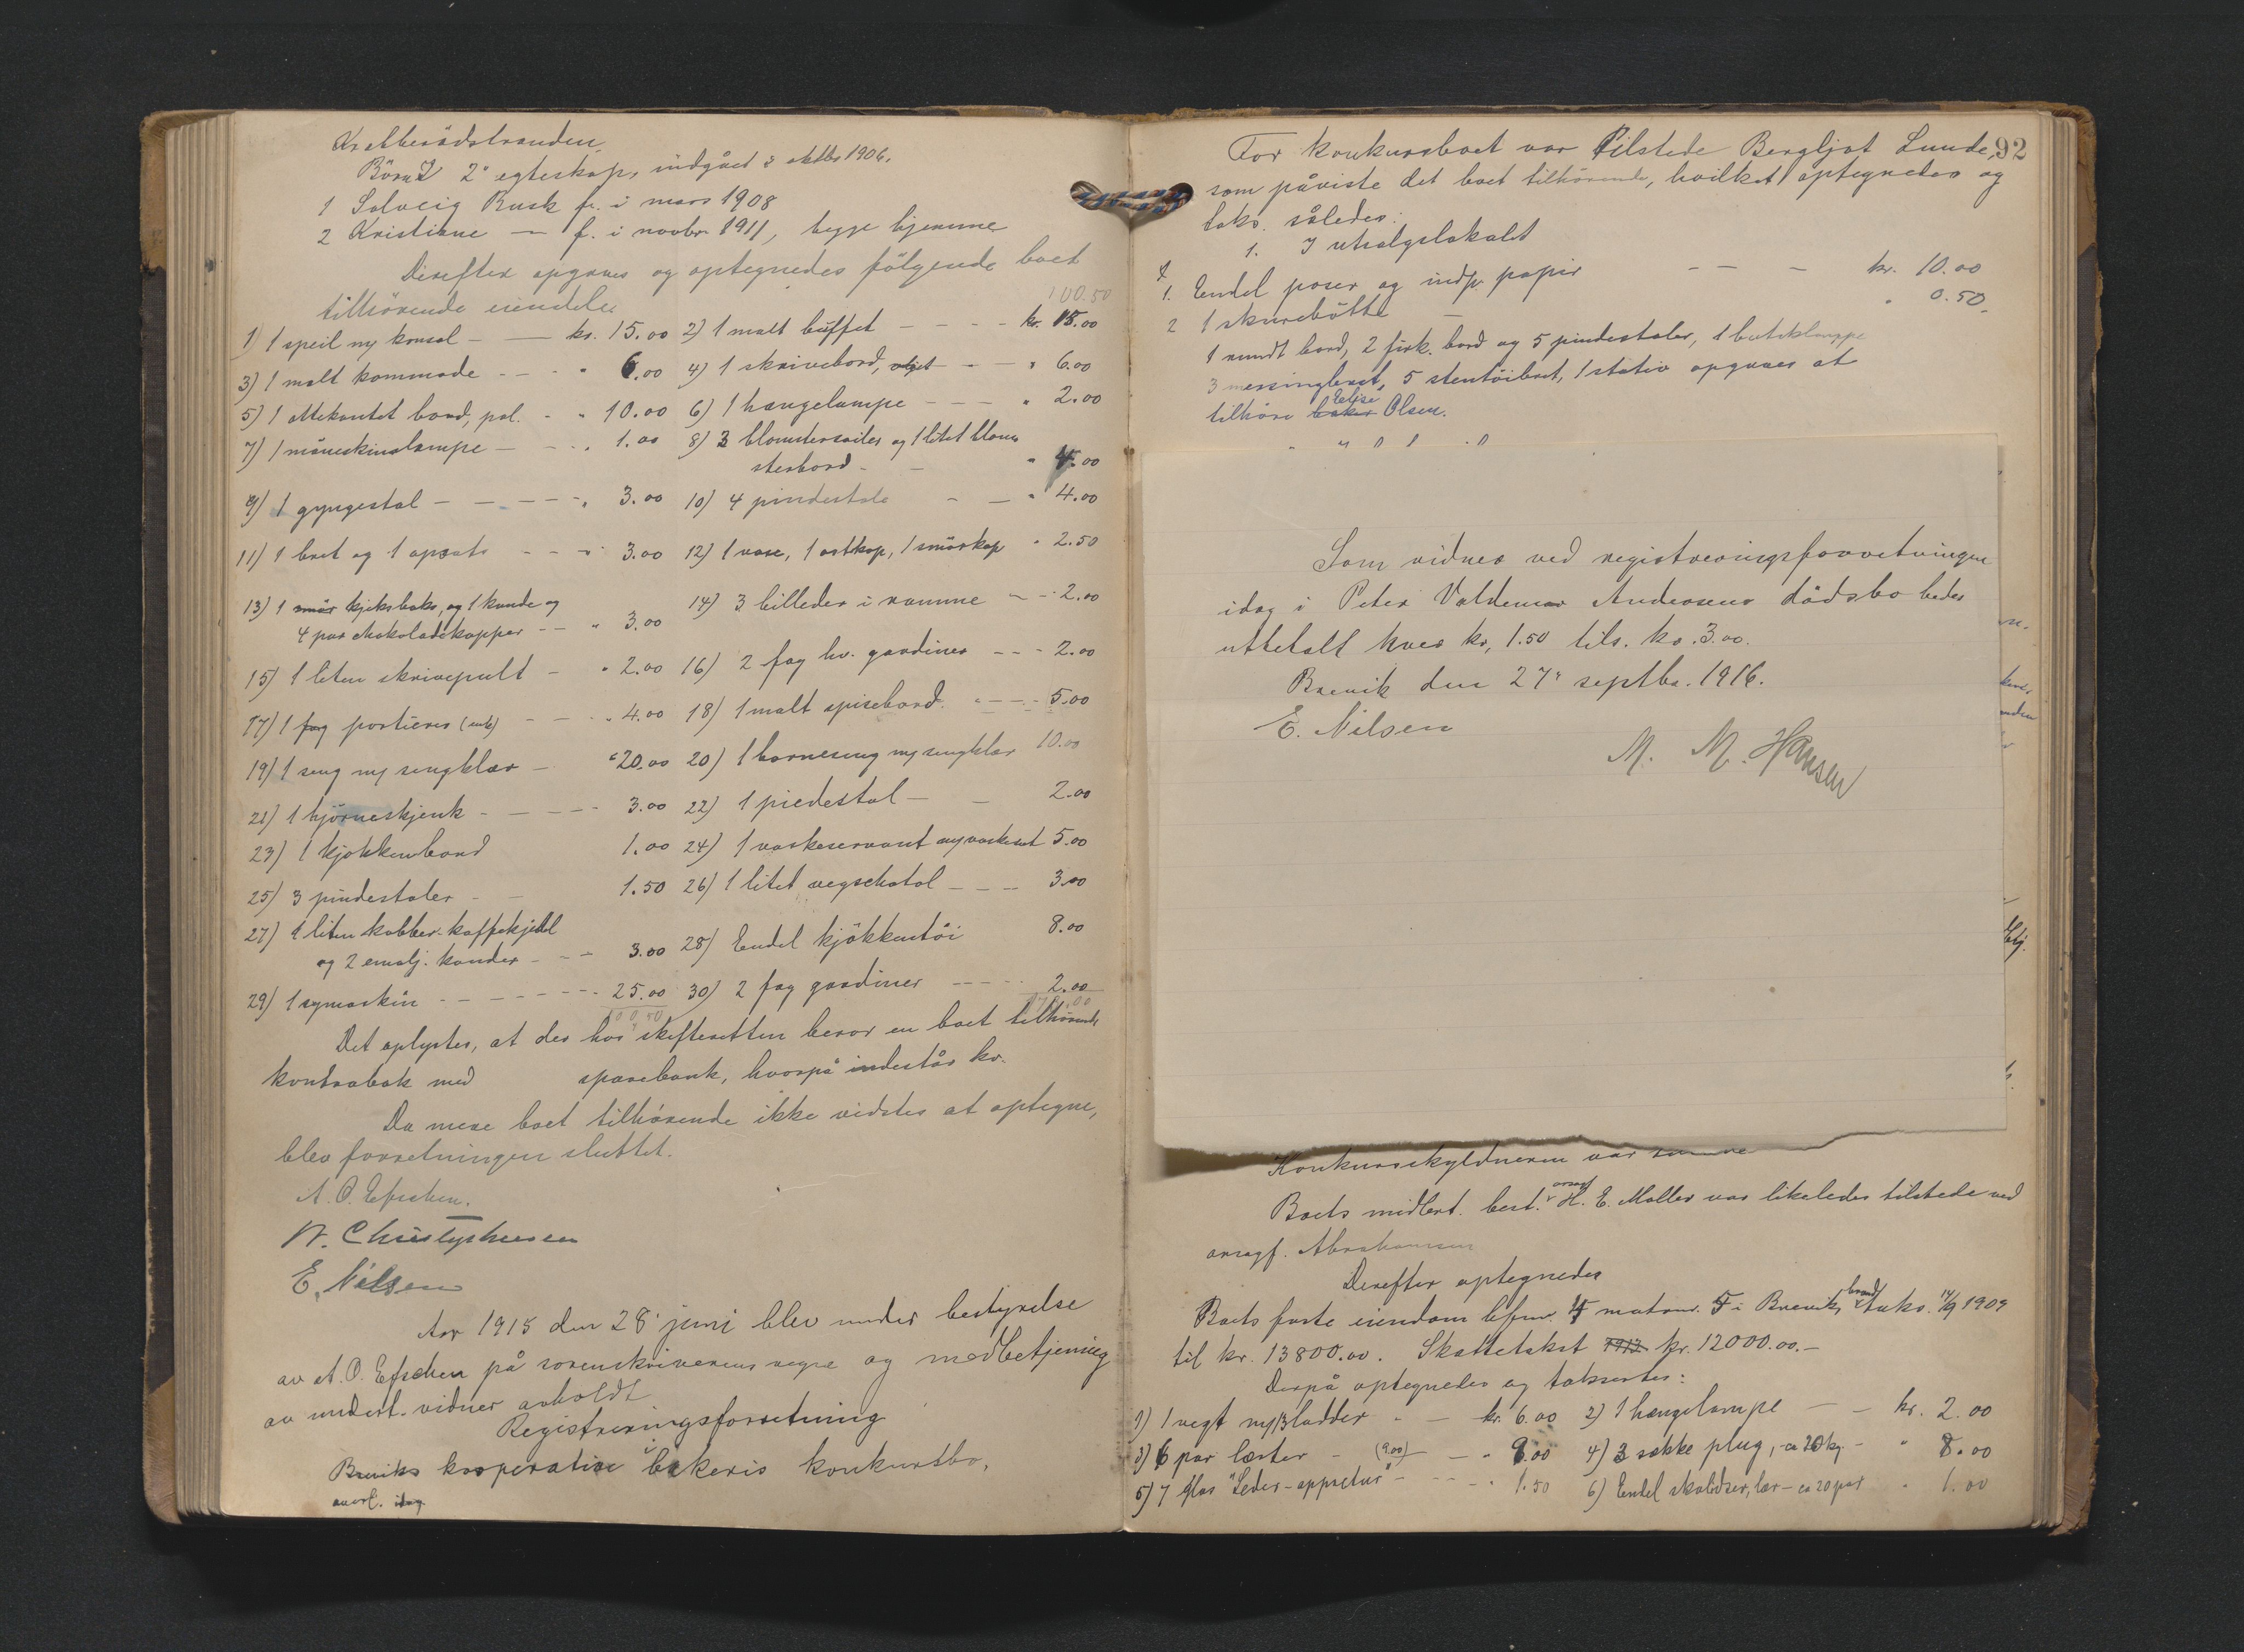 Kratberødstranden.
Børn I 2' egteskap, indgået 3 oktbr 1906.
1 Solveig Rusk f. i mars 1908
2 Kristiane — f. i novbr. 1911, begge hjemme
Derefter opgaves og optegnedes følgende boet
tilhørende eiendele.
100.50
1) 1 speil m/ konsol - — kr. 15.00 2) 1 malt buffet - - - - kr. 15.00
3) 1 malt kommode - - - " 6.00 4) 1 skrivebord, - - " 6.00
5) 1 ottekantet bord, pol. - " 10.00 6) 1 hængelampe - - — " 2.00
7) 1 måneskinslampe - - - " 1.00 8) 3 blomstersøiler og 1 litet blom
sterbord - - " 4.00
9) 1 gyngestol - - - - - " 3.00 10) 4 pindestole - — " 4.00
11) 1 bret og 1 opsats - - - " 3.00 12) 1 vase, 1 ostkop, 1 smørkop " 2.50
13) 1 smør kjeksboks, og 1 kande og
4 par chokoladekopper - — " 3.00 14) 3 billeder i ramme - - 2.00
15) 1 liten skrivepult - " 2.00 16) 2 fag hv. gardiner - - - 2.00
17) 1 fag portierer (enk) - - - " 4.00 18) 1 malt spisebord. " - - - 5.00
19) 1 seng m/ sengklær - " 20.00 20) 1 barneseng m/ sengklær 10.00
21) 1 hjørneskjenk - - - - - 3.00 22) 1 piedestal - - 2.00
23) 1 kjøkkenbord 1.00 24) 1 vaskeservant m/ vaskeset 5.00
25) 3 pindestoler - - 1.50 26) 1 litet vegschatol - - - 3.00
27) 1 liten kobber-kaffekjedel
og 2 emalj. kander - - - 3.00 28) Endel kjøkkentøi 8.00
29) 1 symaskin - - - - - - - 25.00 30) 2 fag gardiner - - - - 2.00
100.50
Det oplystes, at der hos skifteretten beror en boet tilhørende
kontrabok med sparebank, hvorpå indestår kr.
Da mere boet tilhørende ikke vidstes at optegne,
blev forretningen sluttet.
A. O. Efschen.
N. Christophersen
E. Nilsen
Aar 1915 den 28' juni blev under bestyrelse
av A. O. Efschen på sorenskriverens vegne og medbetjening
av undert. vidner avholdt
Registreringsforretning
i
Breviks kooperative bakeris konkursbo,
averl. idag
92
For konkursboet var tilstede Bergljot Lunde,
som påviste det boet tilhørende, hvilket optegnedes og
taks. således:
1. I utsalgslokalet
1. Endel poser og indp. papir - - - kr. 10.00
2 1 skurebøtte - " 0.50
1 rundt bord, 2 firk. bord og 5 pindestoler, 1 butiklampe
3 messingbret, 5 stentøibret, 1 stativ opgaves at
Elise
tilhøre baker Olsen.
Som vidner ved registreringsforretningen
idag i Peter Valdemar Andersens dødsbo bedes
utbetalt hver kr. 1.50 tils. kr. 3.00.
Brevik den 27' septbr. 1916.
E. Nilsen
M. M. Hansen
Konkursskyldneren var
Boets midlert. best. H. E. Møller var likeledes tilstede ved
Abrahamsen
Derefter optegnedes
brand
Boets faste eiendom matrnr. 5 i Brevik, taks. 14/9 1909
til kr. 13800.00. Skattetakst 1912 kr. 12000.00.-
Derpå optegnedes og takseredes:
1) 1 vegt m/ 3 lodder - — kr. 6.00 2) 1 hængelampe — - kr. 2.00
3) 6 par læster - (9.00) — " 9.00 4) 3 sække plug, ca 20 kg. - " 8.00
5) 7 glas "Leder-appretur" - - - " 1.50 6) Endel skolidser, lær - ca 20 par " 1.00